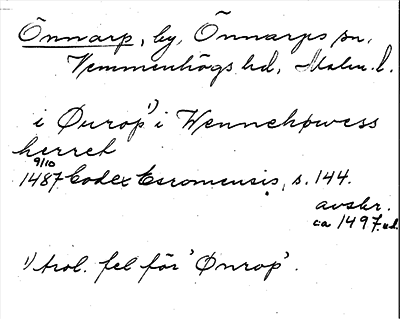 Önnarp, by, Önnarps sn,
Vemmenhögs hd, Malm. l.
i Øurop¹) i Wennehøwess
herret
9/10
1487 Codex Esromensis, s. 144.
avskr.
ca 1497.
¹) trol. fel för 'Ønrop'.